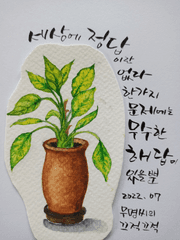 세상에 정답
이란
없다
한가지
문제에는
무수한
해답이
있을뿐
2022. 07
무명씨의
끄적끄적